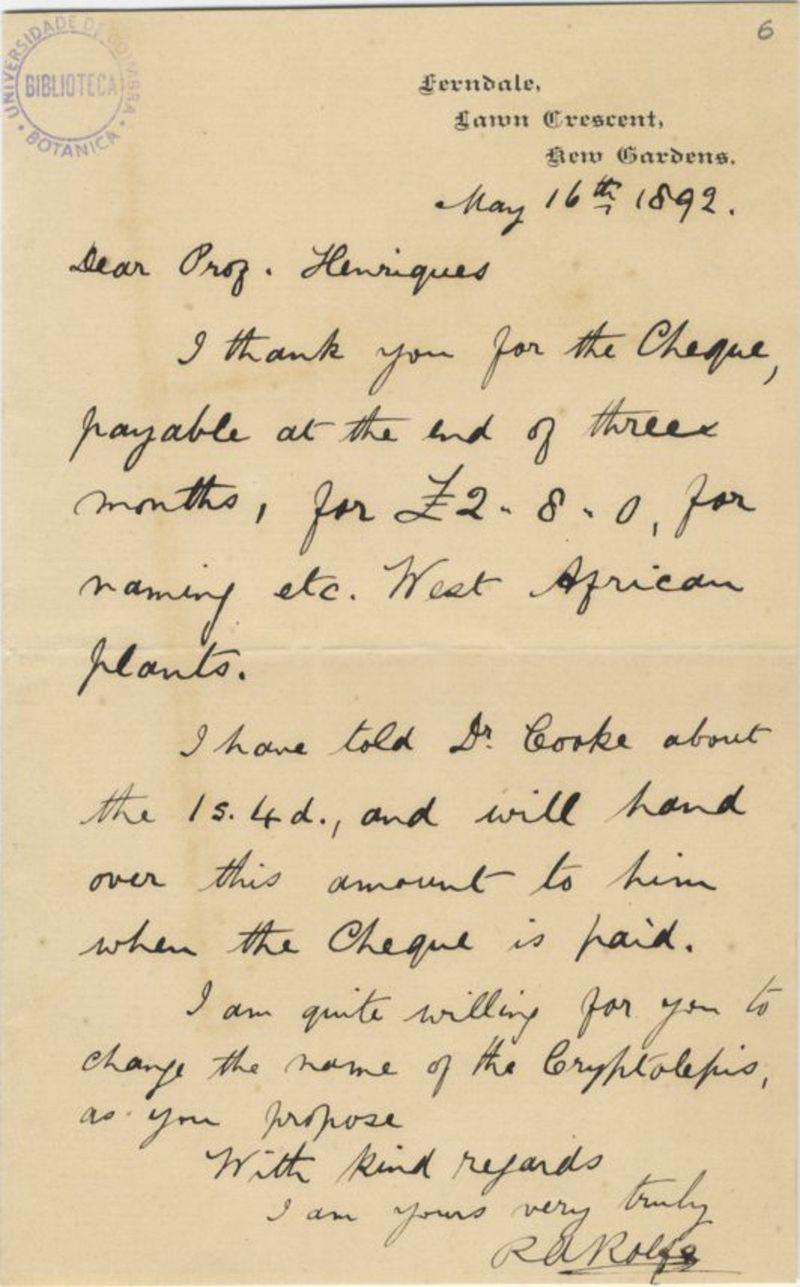 6
UNIVERSIDADE DE COIMBRA
BIBLIOTECA
BOTANICA
Ferndale,
Lawn Crescent,
Kew Gardens.
May 16th 1892.
Dear Prof. Henriques
I thank you for the Cheque,
payable at the end of three
months, for £2-8-0, for
naming etc. West African
plants.
I have told Dr. Cooke about
the 1s. 4d., and will hand
over this amount to him
when the Cheque is paid.
I am quite willing for you to
change the name of the Cryptolepis,
as you propose
With kind regards
I am yours very truly
R A Rolfe